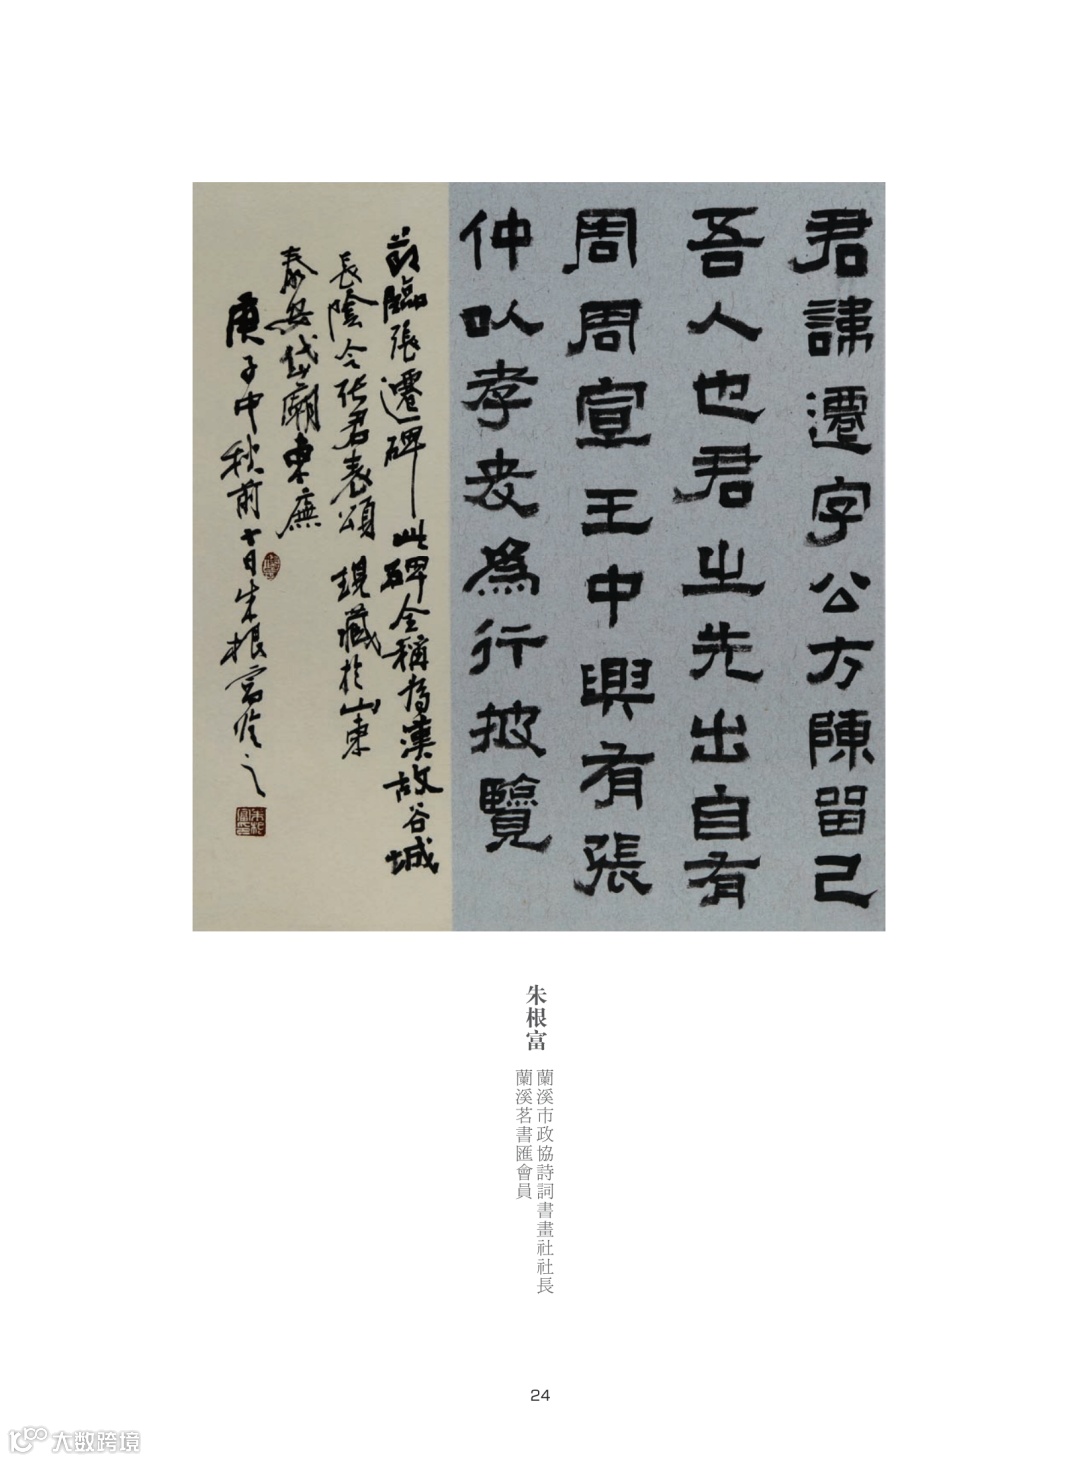 君諱遷字公方陳留己
吾人也君之先出自有
周周宣王中興有張
仲以孝友為行披覽
節臨張遷碑此碑全稱為漢故谷城
長蔭令張君表頌現藏於山東
泰安岱廟東廡
庚子中秋前十日朱根富於之
朱根富
蘭溪市政協詩詞書畫社社長
蘭溪茗書匯會員
24
大数跨境